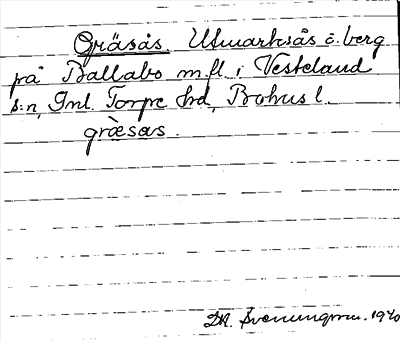 Gräsås. Utmarksås o. berg
på Ballabo m.fl. i Vesterland
s:n, Inl. Torpe hd, Bohus l.
græ̀sås.
D.A. Svenungsson. 1940